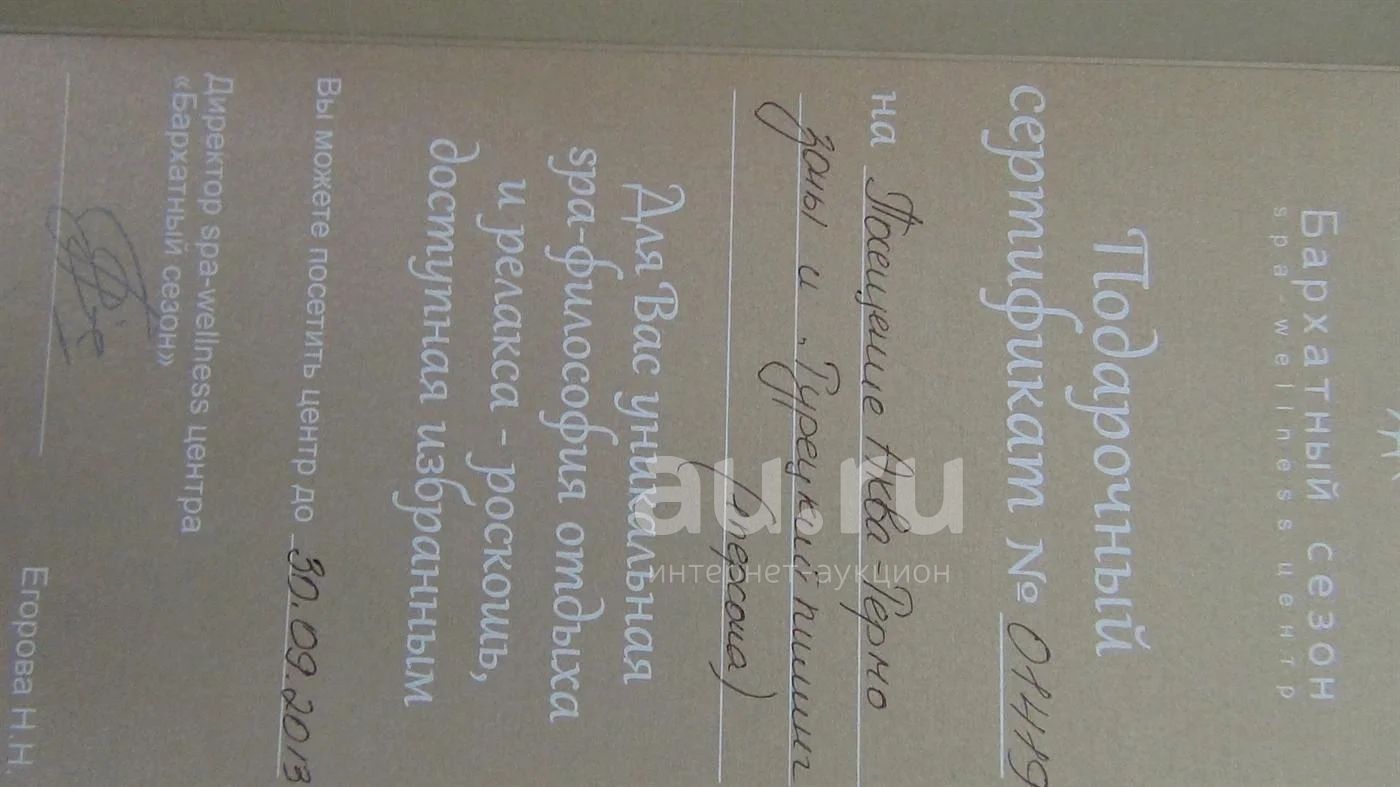 Бархатный сезон
spa-wellness центр
Подарочный
сертификат № 01419
на Посещение Аква-Термо
зоны и „Турецкий пилинг
(1 персона)
Для Вас уникальная
spa-философия отдыха
и релакса - роскошь,
доступная избранным
Вы можете посетить центр до 30.09.2013
Директор spa-wellness центра
«Бархатный сезон»
Егорова Н.Н.
au.ru
интернет-аукцион